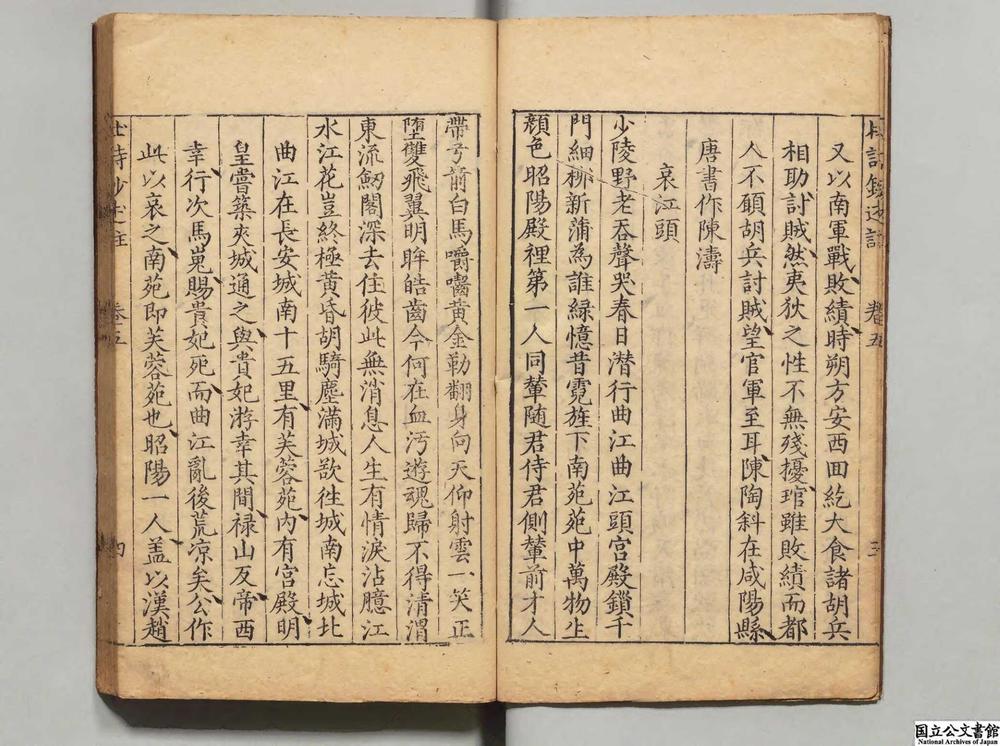 杜詩鈔述註 卷五 三
又以南軍戰敗績時朔方安西囬紇大食諸胡兵
相助討賊然夷狄之性不無殘擾琯雖敗績而都
人不願胡兵討賊望官軍至耳陳陶斜在咸陽縣
唐書作陳濤
哀江頭
少陵野老吞聲哭春日潜行曲江曲江頭宮殿鎖千
門細柳新蒲為誰緑憶昔霓旌下南苑苑中萬物生
顏色昭陽殿裡第一人同輦随君侍君側輦前才人
帶弓箭白馬嚼囓黄金勒翻身向天仰射雲一笑正
墮雙飛翼明眸皓齒今何在血汚遊魂歸不得清渭
東流劒閣深去住彼此無消息人生有情淚沾臆江
水江花豈終極黄昏胡騎塵滿城欲徃城南忘城北
曲江在長安城南十五里有芙蓉苑内有宮殿明
皇嘗築夾城通之與貴妃游幸其間禄山反帝西
幸行次馬嵬賜貴妃死而曲江亂後荒凉矣公作
此以哀之南苑即芙蓉苑也昭陽一人盖以漢趙
杜詩鈔述註 卷五 四
国立公文書館
National Archives of Japan